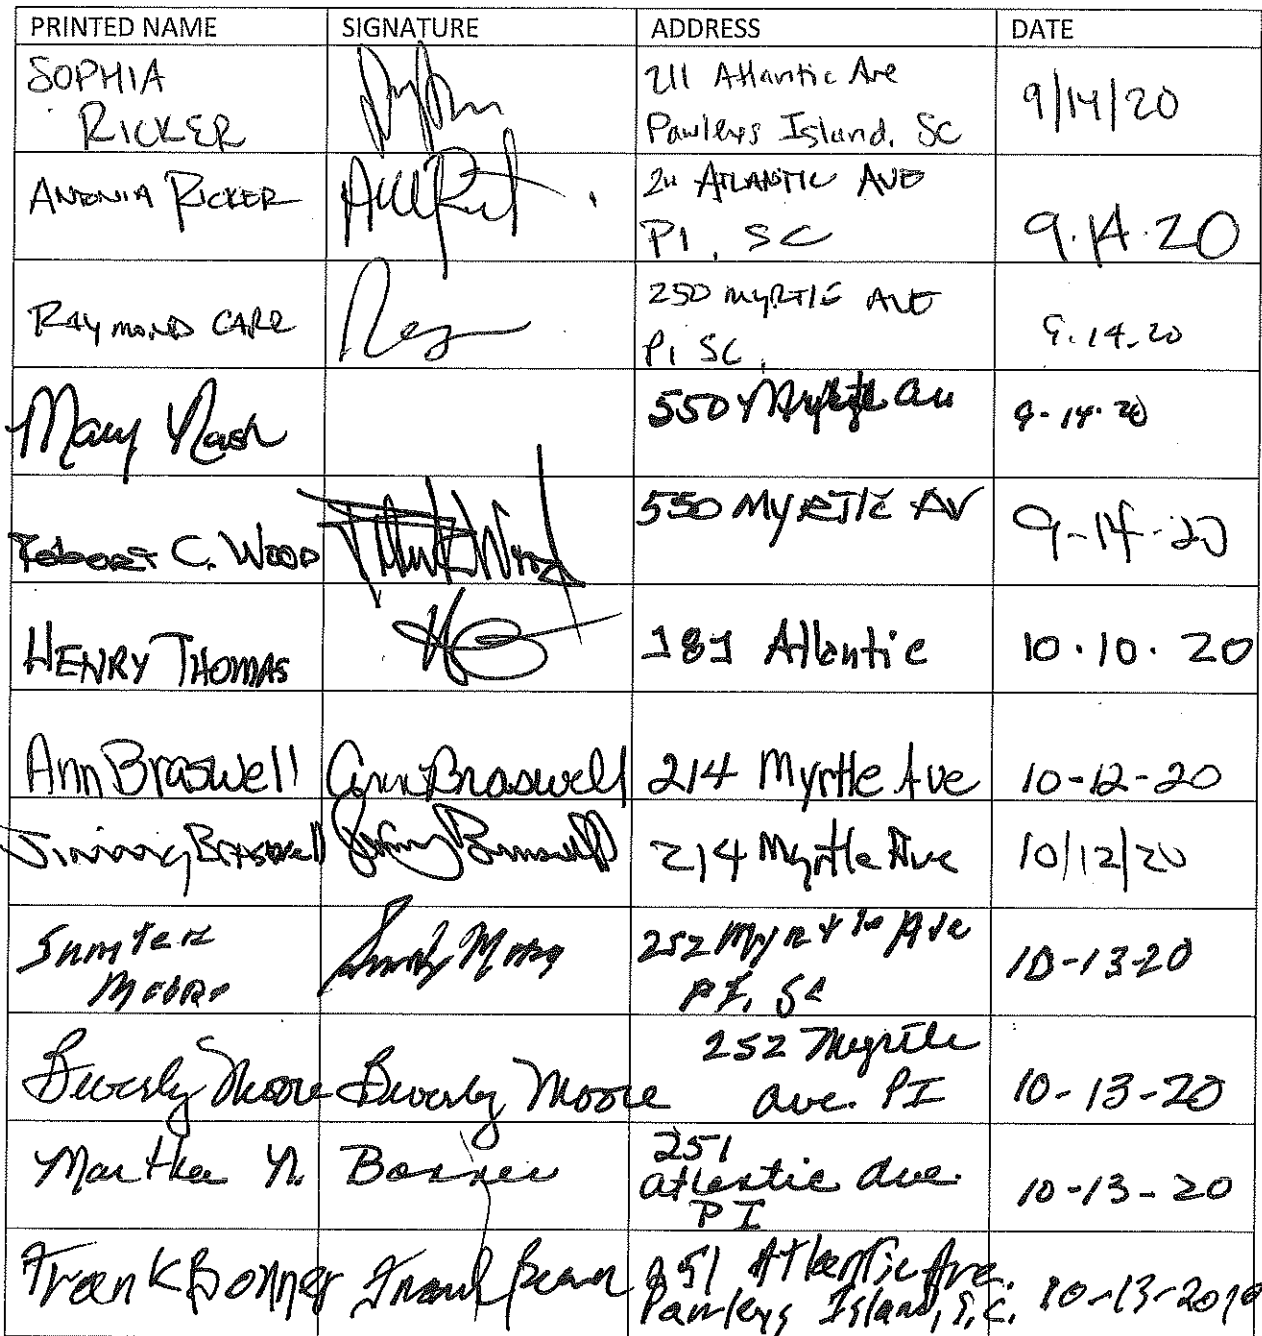 PRINTED NAME SIGNATURE ADDRESS DATE
SOPHIA 211 Atlantic Ave 9/14/20
RICKER Pawleys Island, SC
RICKER 211 ATLANTIC AVE
PI, SC 9.14.20
RAYMOND CARR 250 MYRTLE AVE 9.14.20
PI SC
Mary Nash 550 Myrtle 9-14-20
Robert C. Wood 550 MYRTLE AV 9-14-20
HENRY THOMAS 181 Atlantic 10.10.20
Ann Braswell Ann Braswell 214 Myrtle Ave 10-12-20
Jimmy Braswell Jimmy Braswell 214 Myrtle Ave 10/12/20
Sumter 252 Myrtle Ave 10-13-20
Moore PI, SC
Beverly Moore Beverly Moore 252 Myrtle
ave. PI 10-13-20
Martha N. Bonner 251
atlantic ave. 10-13-20
PI
Frank Bonner Frank 251 Atlantic Ave.
Pawleys Island, S.C. 10-13-2010